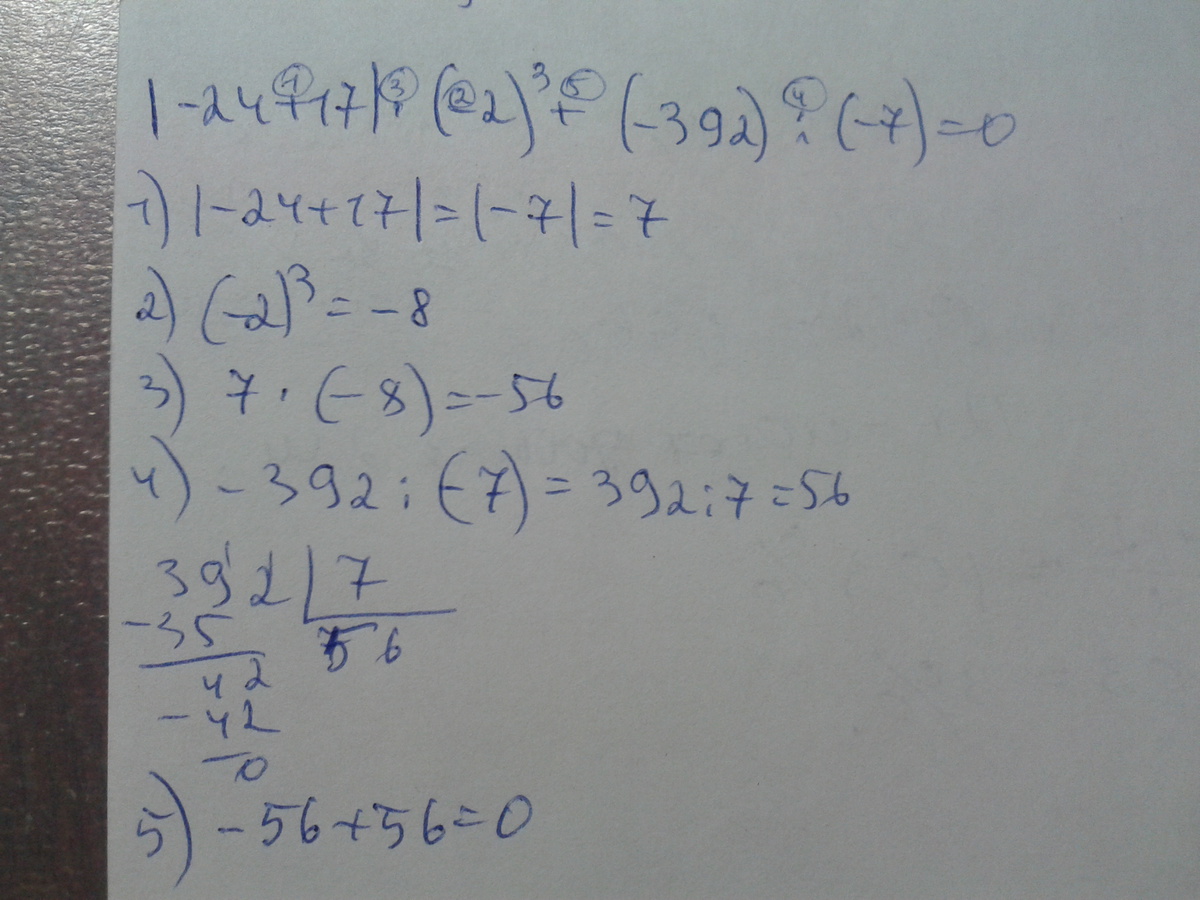 |-24+17|·(-2)³+(-392):(-7)=0
1) |-24+17|=|-7|=7
2) (-2)³=-8
3) 7·(-8)=-56
4) -392:(-7)=392:7=56
392 | 7
-35 56
42
-42
0
5) -56+56=0